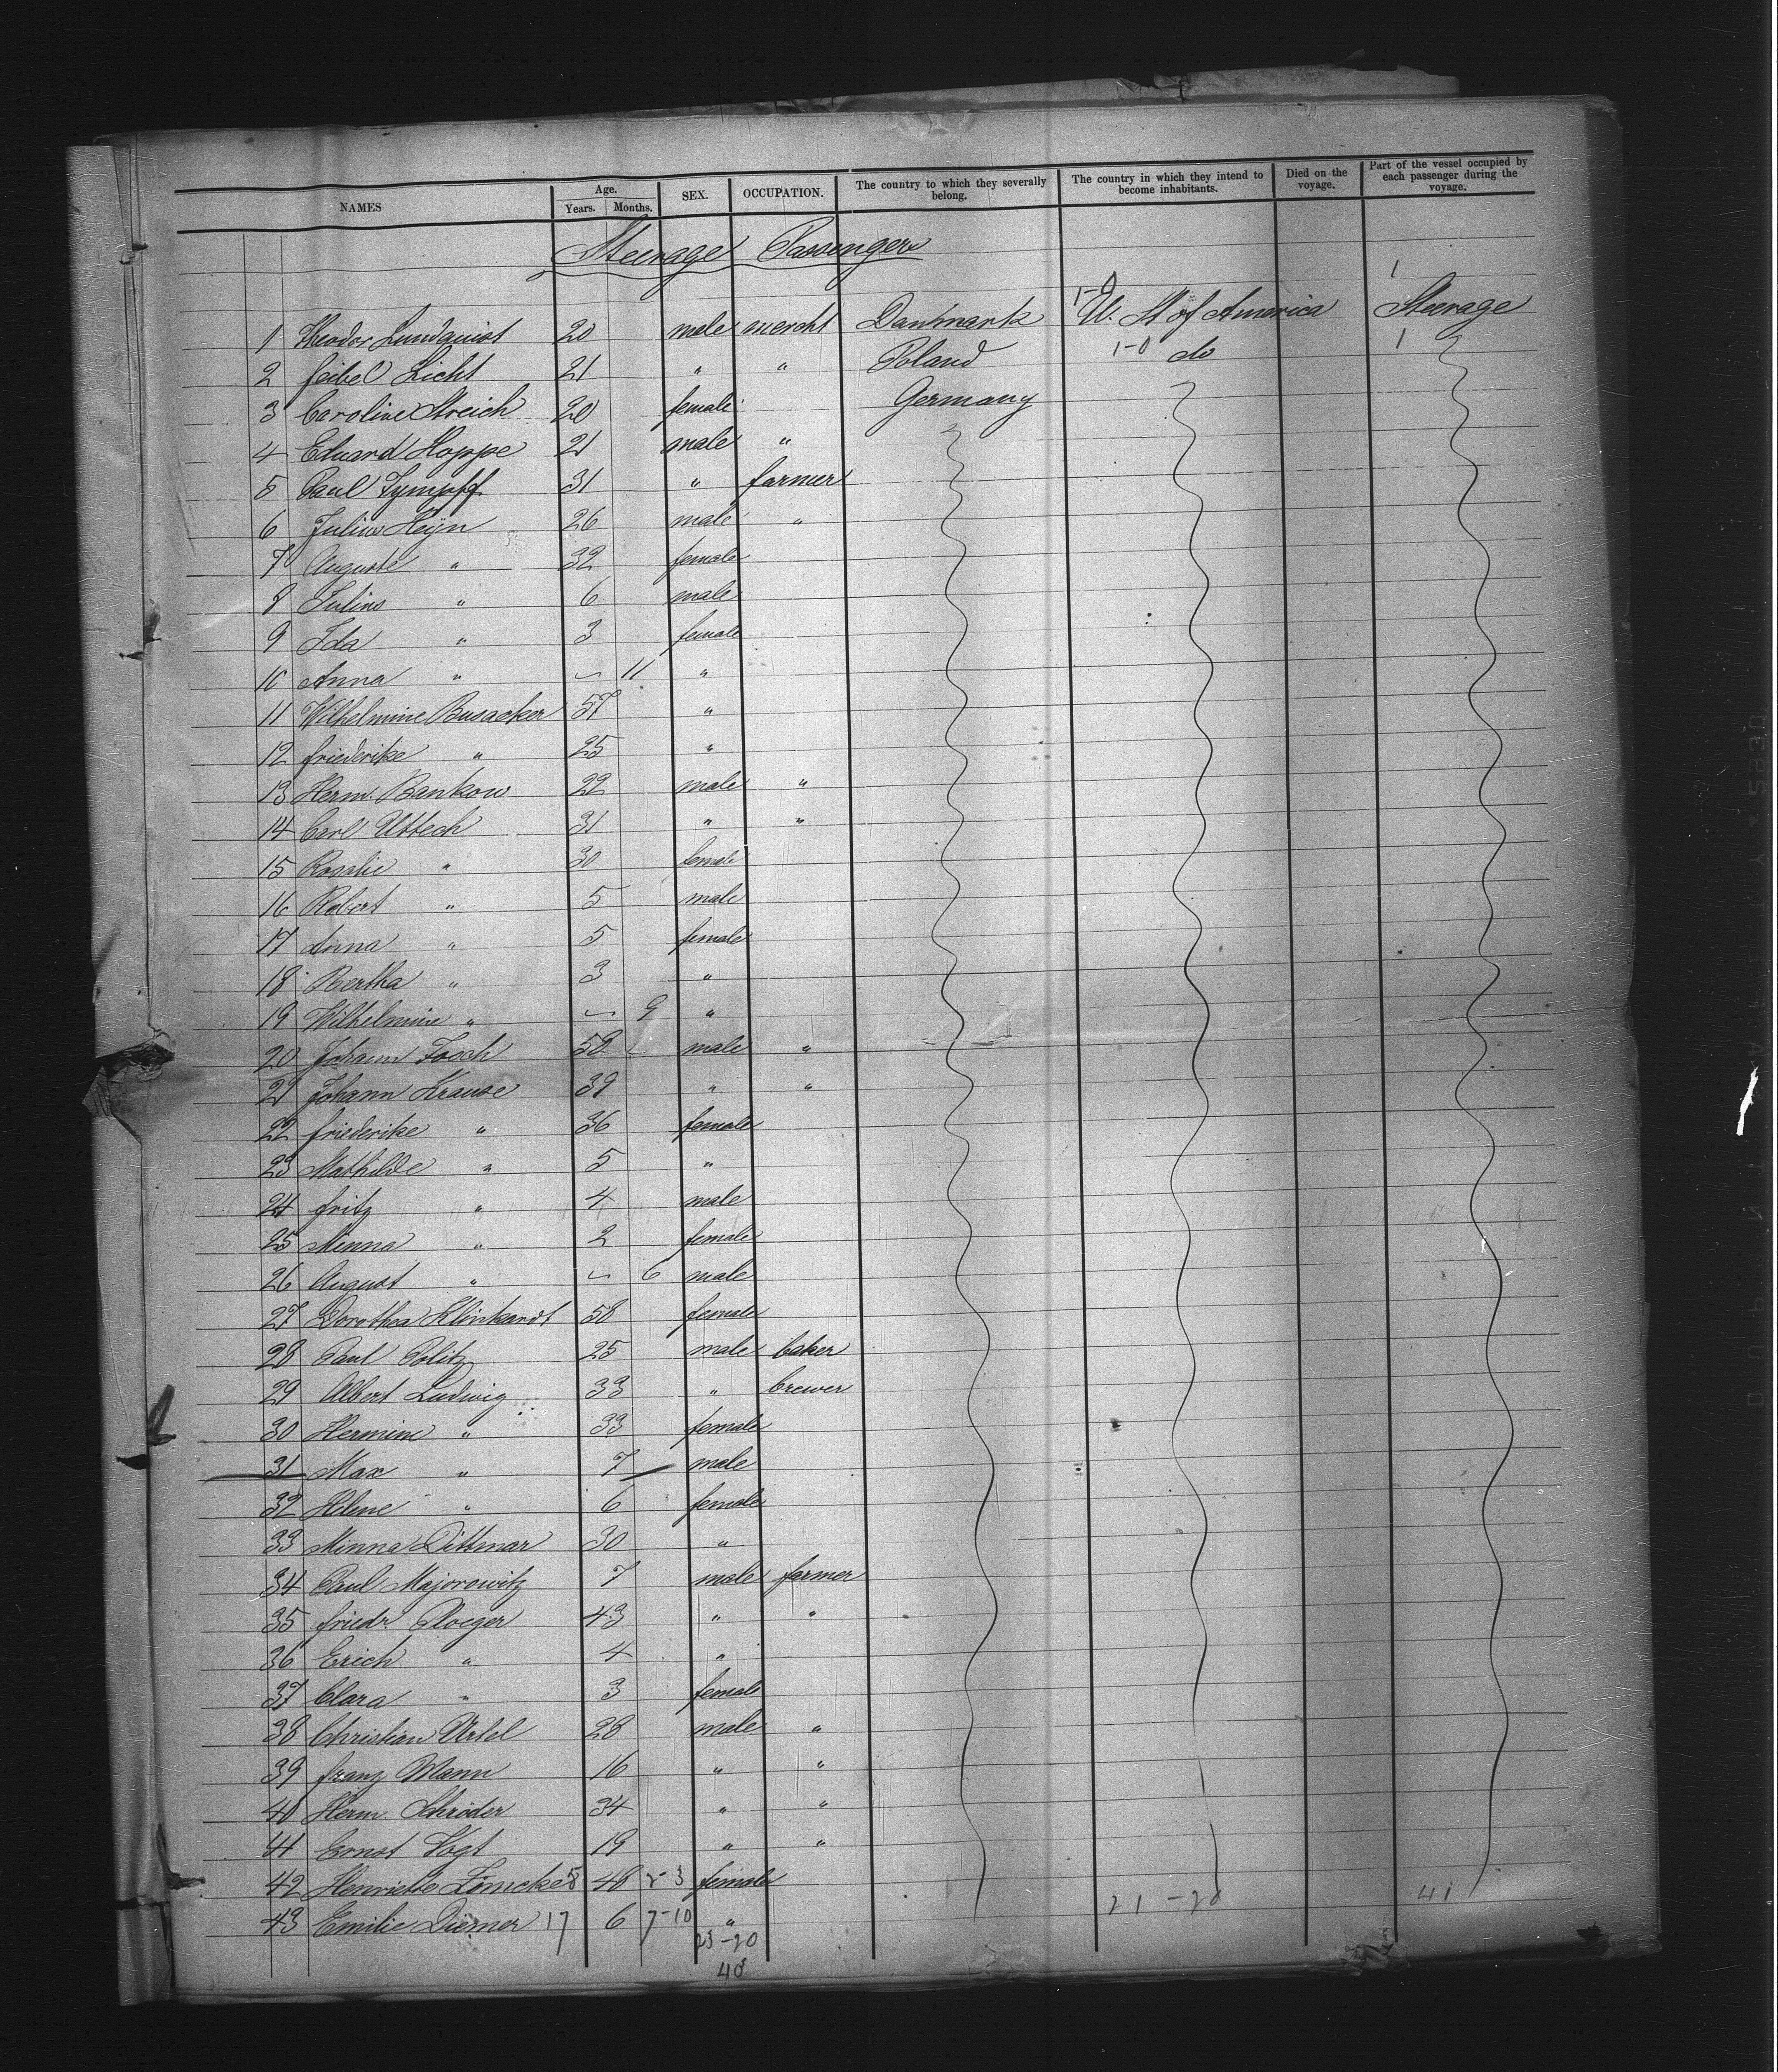 NAMES Age. Years. Months. SEX. OCCUPATION. The country to which they severally belong. The country in which they intend to become inhabitants. Died on the voyage. Part of the vessel occupied by each passenger during the voyage.
Steerage Passengers
1 Theodor Lundquist 20 male mercht Danhmark 1-0 U. St of America 1 Steerage
2 feibel Licht 21 " " Poland 1-0 do 1
3 Caroline Streich 20 female Germany
4 Eduard Hoppe 21 male "
5 Paul 31 " farmer
6 Julius Heÿn 26 male "
7 Auguste " 32 female
8 Julius " 6 male
9 Ida " 3 female
10 Anna " - 11 "
11 Wilhelmine Busacker 57 "
12 friederike " 25 "
13 Herm. Bankow 22 male "
14 Carl Uttech 31 " "
15 Rosalie " 30 female
16 Robert " 5 male
17 Anna " 5 female
18 Bertha " 3 "
19 Wilhelmine " - 9 "
20 Johann 58 male "
21 Johann Krause 39 " "
22 friederike " 36 female
23 Mathilde " 5 "
24 fritz " 4 male
25 Minna " 2 female
26 August " - 6 male
27 Dorothea Klinkardt 58 female
28 Paul Politz 25 male baker
29 Albert Ludwig 33 " brewer
30 Hermine " 33 female
31 Max " 7 male
32 Helene " 6 female
33 Minna Dittmar 30 "
34 Paul Majorowitz 7 male farmer
35 friedr. Ploeger 43 " "
36 Erich " 4 "
37 Clara " 3 female
38 Christian Urtel 28 male "
39 franz Mann 16 " "
40 Herm. Schröder 34 " "
41 Ernst Vogt 19 " "
42 Henriette 5 48 2-3 female
43 Emilie Diemer 17 6 7-10 " 21-20 41
23-20
43